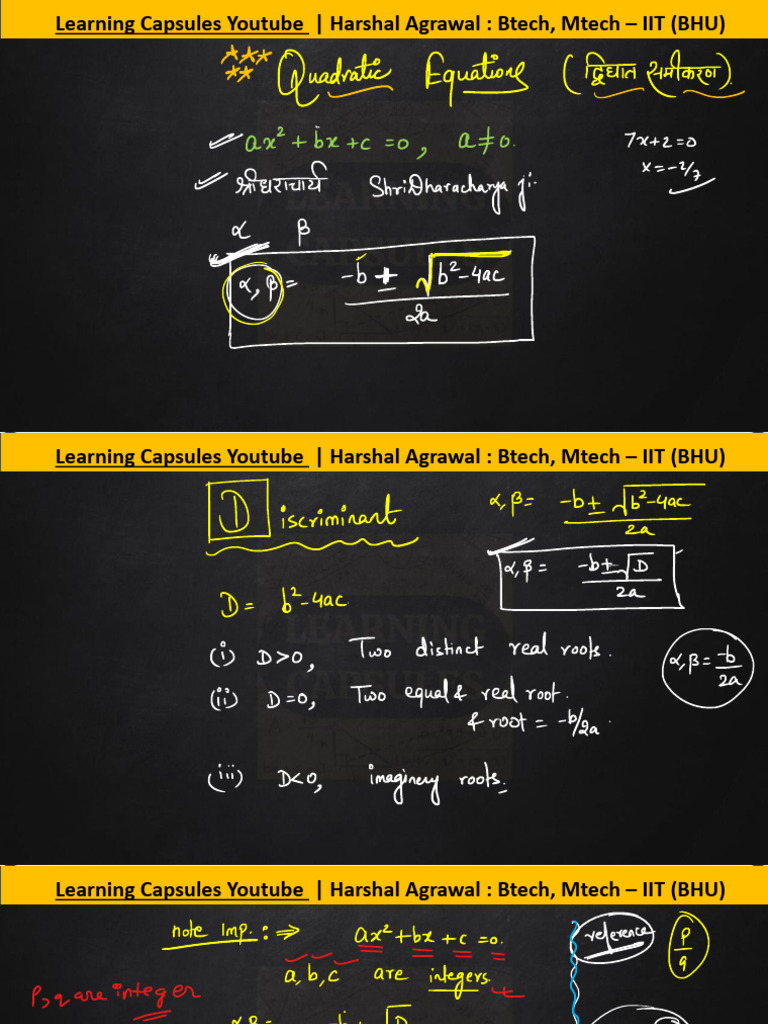 Learning Capsules Youtube | Harshal Agrawal : Btech, Mtech – IIT (BHU)
Quadratic Equations (द्विघात समीकरण)
ax² + bx + c = 0, a ≠ 0.
7x+2=0
x = -2/7
श्रीधराचार्य ShriDharacharya ji.
α β
α, β = -b ± √b²-4ac / 2a
Learning Capsules Youtube | Harshal Agrawal : Btech, Mtech – IIT (BHU)
Discriminant
α, β = -b ± √b²-4ac / 2a
α, β = -b ± √D / 2a
D = b²-4ac
(i) D>0, Two distinct real roots.
α, β = -b/2a
(ii) D=0, Two equal & real root.
& root = -b/2a.
(iii) D<0, imaginery roots.
Learning Capsules Youtube | Harshal Agrawal : Btech, Mtech – IIT (BHU)
note Imp. : ⇒ ax² + bx + c = 0.
reference p/q
a, b, c are integers.
P, q are integer
LEARNING CAPSULES